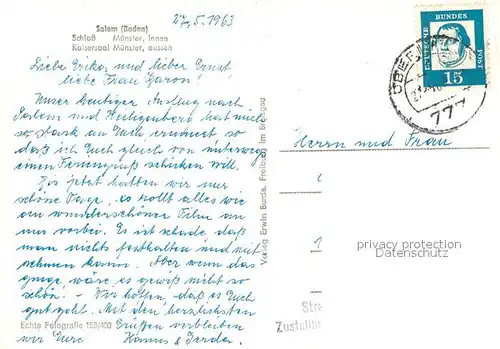 27.5.1963
Salem (Baden)
Schloß Münster, Innen
Kaisersaal Münster, aussen
Liebe Erika, und lieber Ernst
liebe Frau Garon!
Unser heutiger Ausflug nach
Salem und Heiligenberg hat mich
so stark an Euch erinnert so
daß ich Euch gleich von unterwegs
einen Feriengruß schicken will.
Bis jetzt hatten wir nur
schöne Tage, es rollt alles wie
ein wunderschöner Film an
uns vorbei. Es ist schade daß
man nichts festhalten und mit
nehmen kann. Aber wenn das
ginge, wäre es gewiß nicht so
schön. - Wir hoffen, daß es Euch
gut geht. Mit den herzlichsten
Grüßen verbleiben
wir Eure Hanns & Gerda.
Echte Fotografie 168/400
Verlag Erwin Burda, Freiburg im Breisgau
DEUTSCHE BUNDES POST
15
777
Herrn und Frau
1
privacy protection
Datenschutz
Str
Zustell